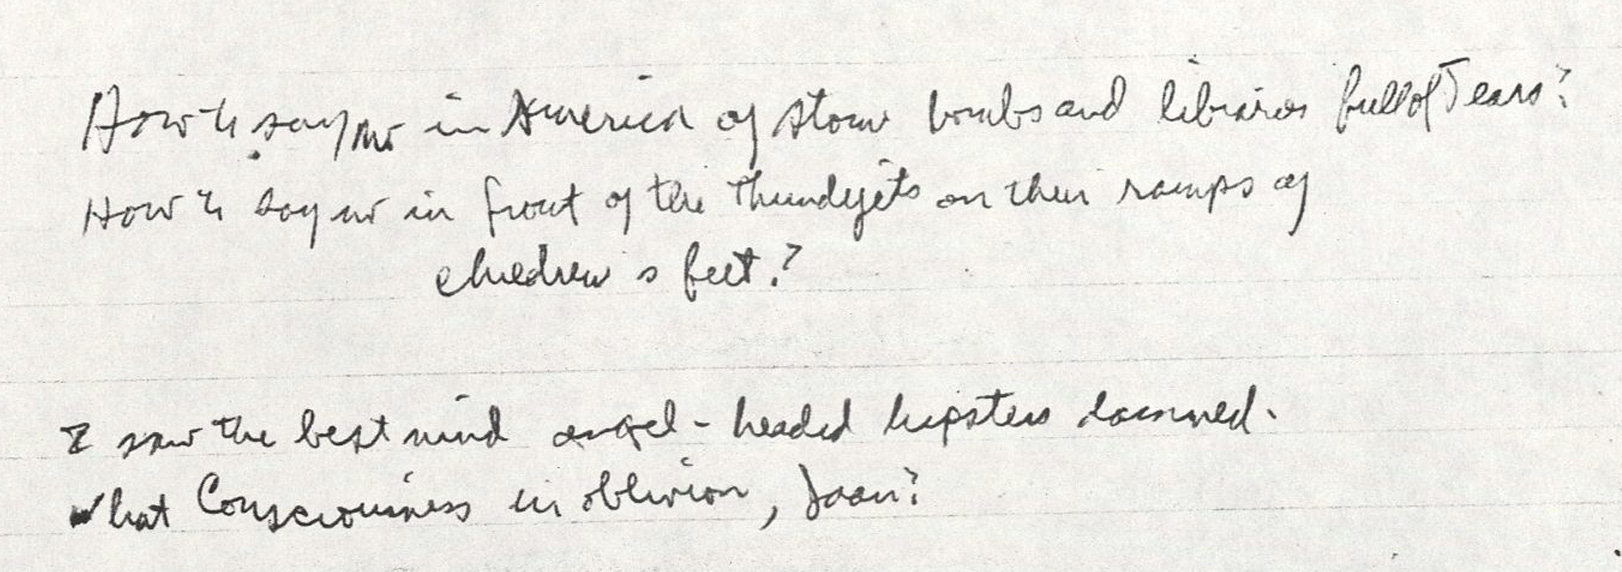 How to say no in America of atom bombs and libraries full of Tears?
How to say no in front of the Thunderjets on their ramps of
children s feet?
I saw the best mind angel-headed hipsters damned.
What Consciousness in oblivion, Joan?